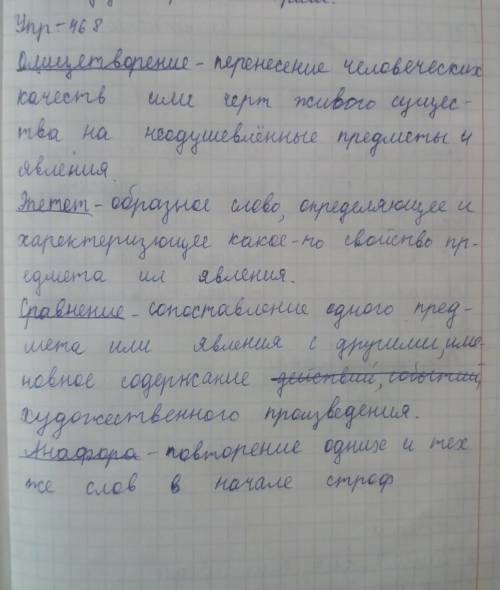 Упр-468
Олицетворение - перенесение человеческих
качеств или черт живого сущес-
тва на неодушевлённые предметы и
явления.
Эпетет - образное слово, определяющее и
характеризующее какое-то свойство пр-
едмета ил явления.
Сравнение - сопоставление одного пред-
мета или явления с другими, име-
новное содержание действий, событий,
художественного произведения.
Анафора - повторение одних и тех
же слов в начале строф